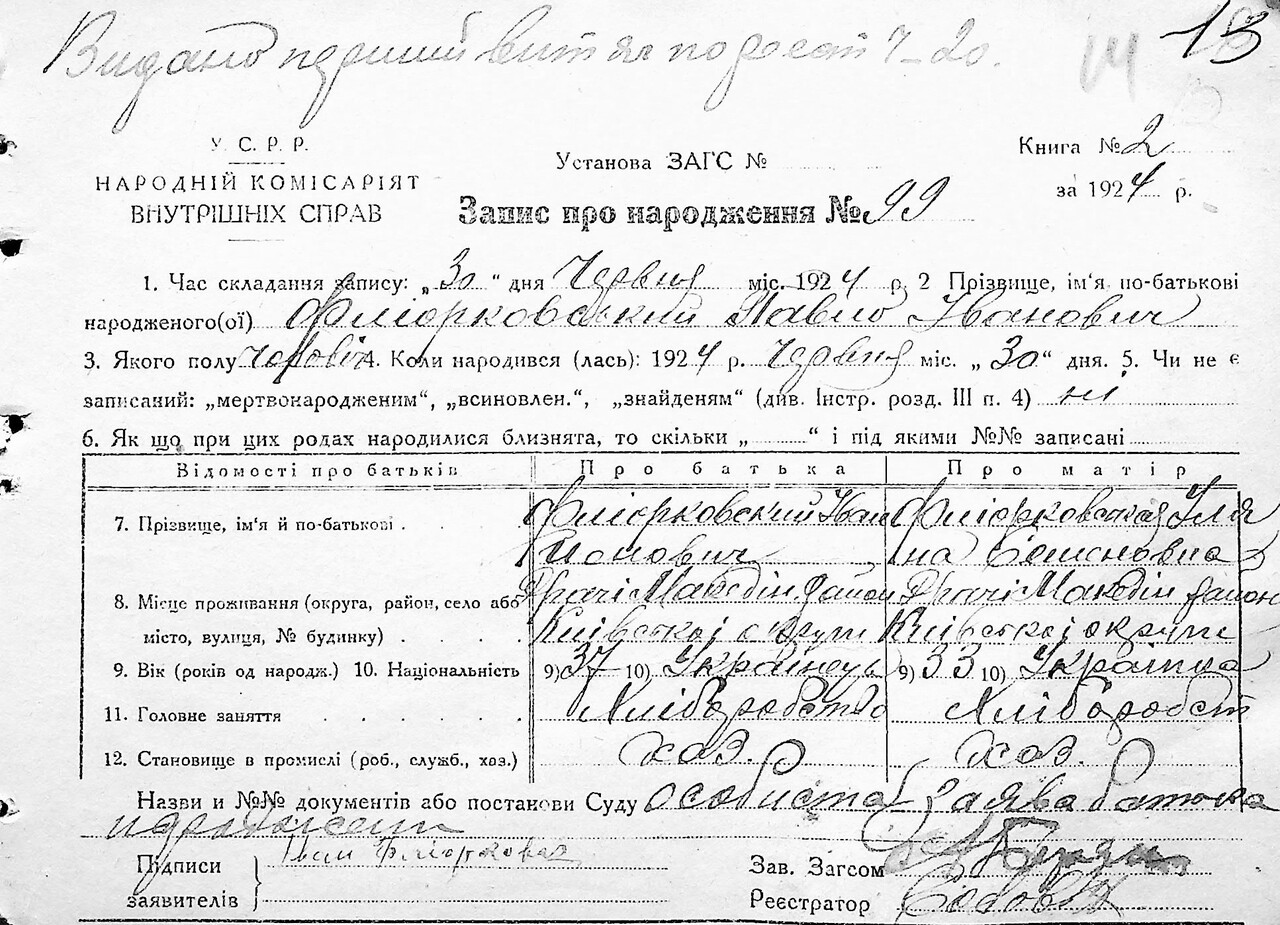 Видано перший витяг по реєст 7-20.
13
14
У. С. Р. Р.
НАРОДНІЙ КОМІСАРІЯТ
ВНУТРІШНІХ СПРАВ
Установа ЗАГС №
Книга № 2
за 1924 р.
Запис про народження № 99
1. Час складання запису: „30“ дня Червня міс. 1924 р. 2 Прізвище, ім'я по-батькові
народженого(ої) Фліорковський Павло Іванович
3. Якого полу Чоловіч 4. Коли народився (лась): 1924 р. Червня міс. „30“ дня. 5. Чи не є
записаний: „мертвонародженим“, „всиновлен.“, „знайденям“ (див. Інстр. розд. III п. 4) ні
6. Як що при цих родах народилися близнята, то скільки „ “ і під якими №№ записані
Відомості про батьків Про батька Про матір
7. Прізвище, ім'я й по-батькові Фліорковский Іван Фліорковская Уля
на
8. Місце проживання (округа, район, село або Македін район Македін район
місто, вулиця, № будинку) Київської округи Київської округи
9. Вік (років од народж.) 10. Національність 9) 37 10) Українець 9) 33 10) Українка
11. Головне заняття Хліборобство Хліборобст
12. Становище в промислі (роб., служб., хоз.) хоз. хоз.
Назви и №№ документів або постанови Суду особиста заява батька
Підписи Іван Фліорковский
заявителів
Зав. Загсом
Реєстратор